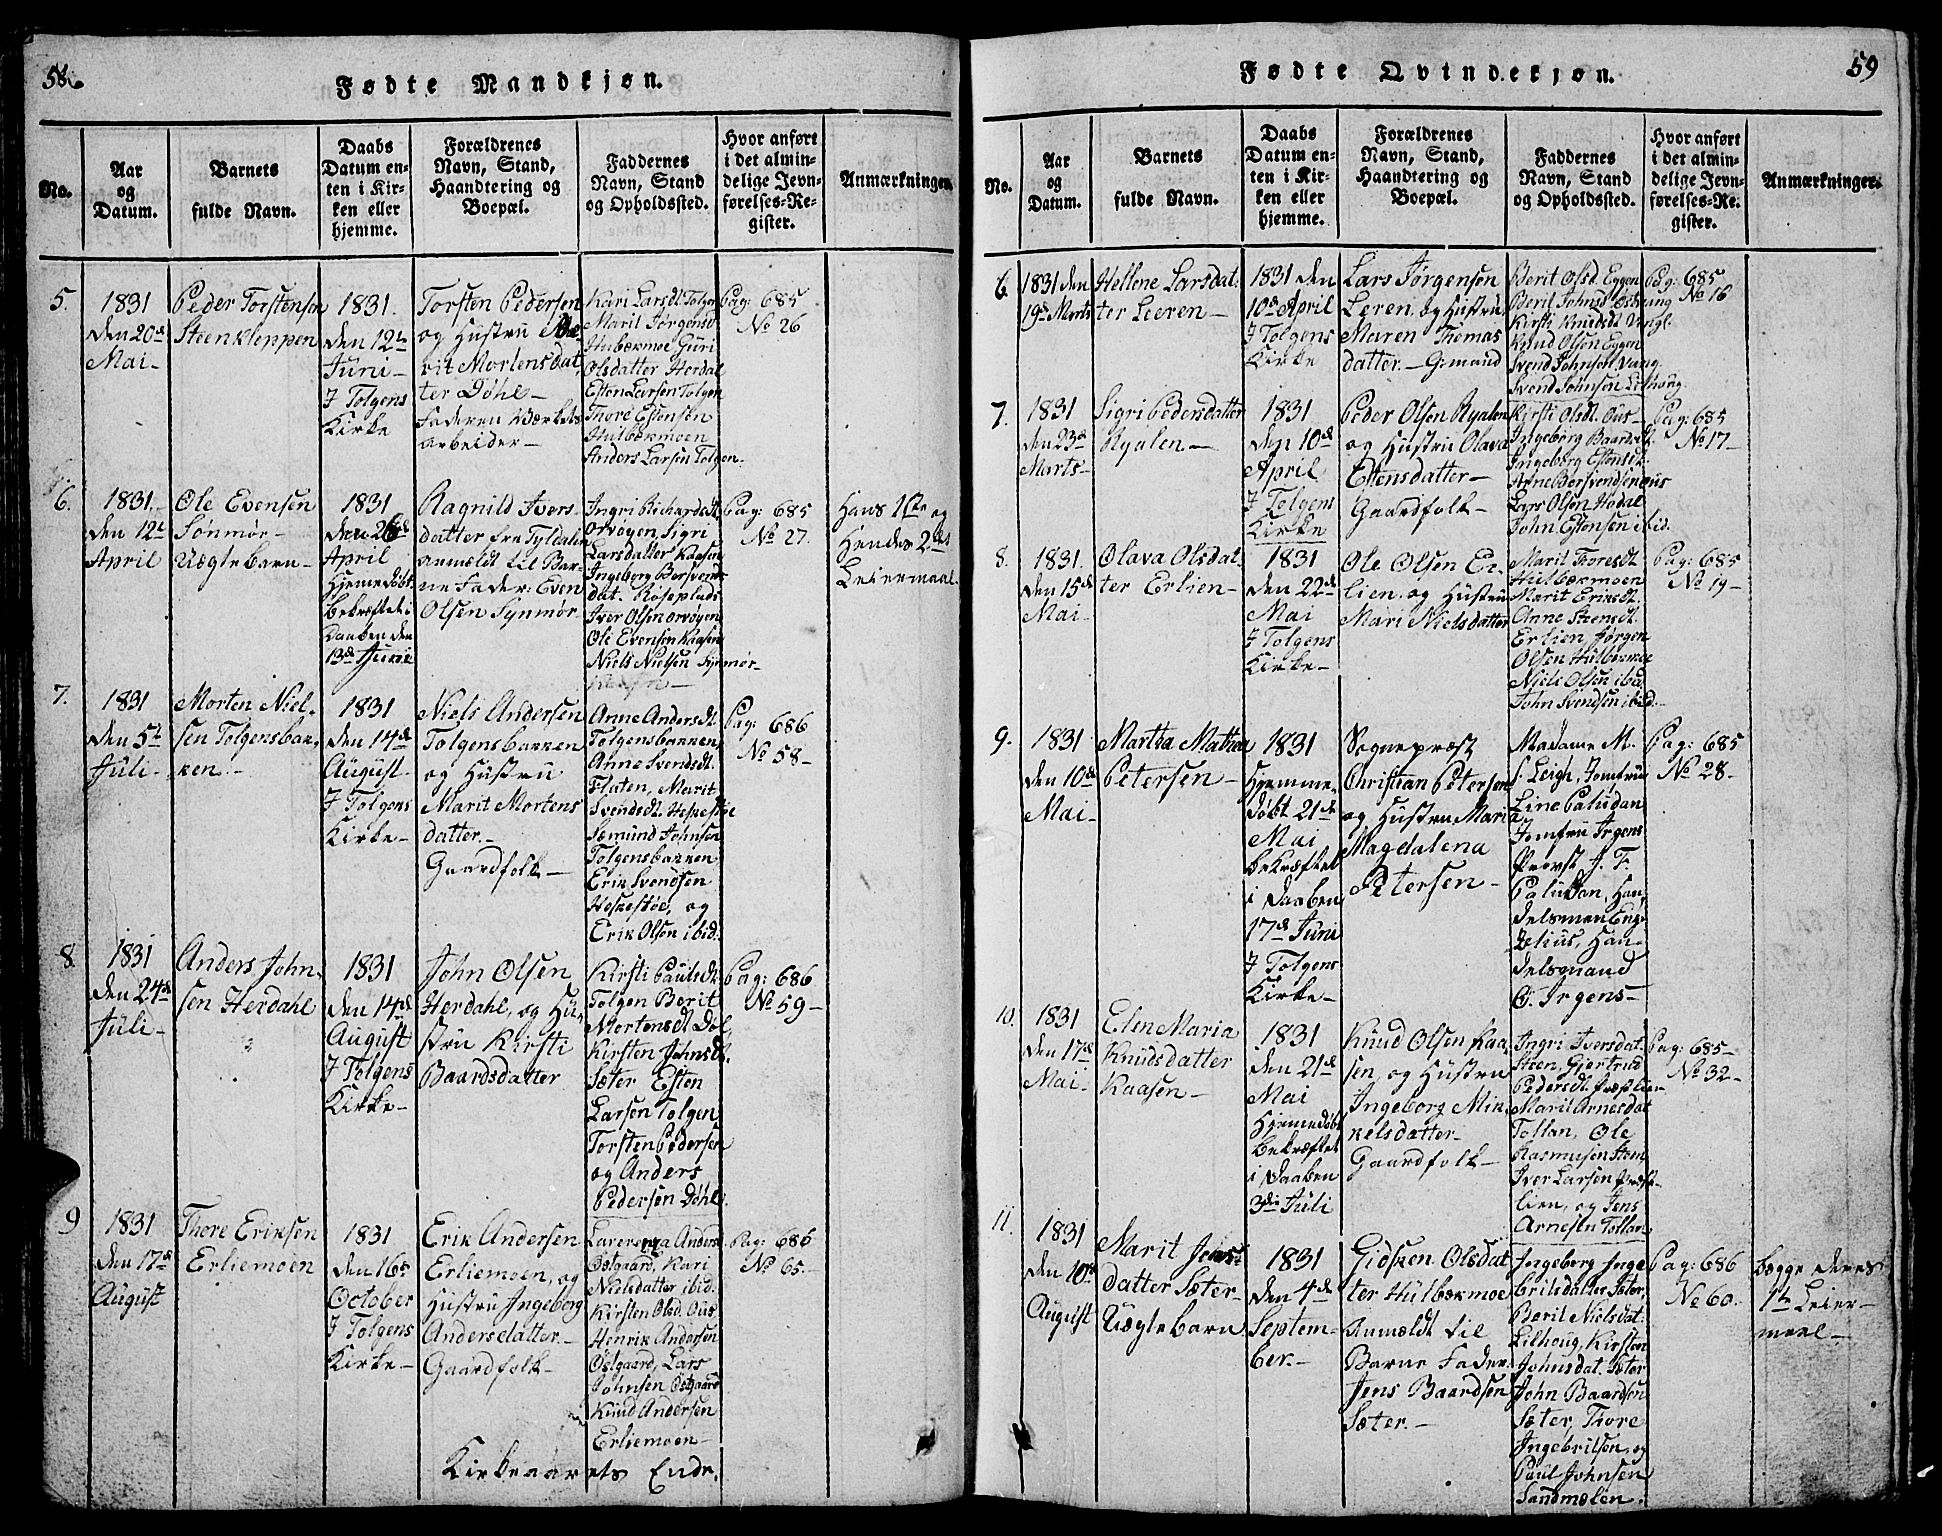 58.
Fødte Mandkjøn.
No.
Aar
og
Datum.
Barnets
fulde Navn.
Daabs
Datum en-
ten i Kir-
ken eller
hjemme.
Forældrenes
Navn, Stand,
Haandtering og
Boepæl.
Faddernes
Navn, Stand
og Opholdssted.
Hvor anført
i det almin-
delige Jevn-
førelses-Re-
gister.
Anmærkninger.
5.
1831
den 20de
Mai-
Peder Torstensen
Steenkleppen
1831.
den 12te
Juni-
I Tolgens
Kirke
Torsten Pedersen
og Hustru Be-
rit Mortensdat
ter Døhl-
Faderen Værkets
arbeider-
Kari Larsdt. Tolgen
Marit Jørgensd.
Hulbækmoe Guri
Olsdatter Herdal
Esten Larsen Tolgen
Thore Estensen
Hulbækmoen
Anders Larsen Tolgen.
Pag: 685
No 26
6.
1831.
den 12te
April
Ole Evensen
Sønmør-
Uægtebarn-
1831
den 26de
April
hjemedøbt
bekræftet i
daaben den
13de Junie
Ragnild Ivers-
datter fra Tyldalen
anmeldt til Bar-
ne Fader: Even
Olsen Synmør.
Ingri Richardsdt.
Orvogen Sigri
Larsdatter Kaasen
Ingeborg Bersvends
dat. Roseplads
Iver Olsen Orvogen
Ole Evensen Kaasen
Niels Nielsen Synmør-
Pag: 685
No 27.
Hans 1ste og
Hendes 2det
Leiermaal.
7.
1831
den 5te
Juli-
Morten Niel-
sen Tolgensbak-
ken.-
1831
den 14de
August-
I Tolgens
Kirke-
Niels Andersen
Tolgensbakken
og Hustru
Marit Mortens
datter.-
Gaardfolk-
Anne Andersdt.
Tolgensbakken,
Anne Svendsdt.
Flaten, Marit
Svendsdt. Heskestøe
Semund Johnsen
Tolgensbakken
Erik Svendsen
Heskestøe, og
Erik Olsen ibid:
Pag: 686
No 58-
8
1831
den 24de
Juli-
Anders John-
sen Herdahl
1831
den 14de
August
I Tolgens
Kirke-
John Olsen
Herdahl, og Hu-
stru Kirsti
Baardsdatter
Kirsti Paulsdt.
Tolgen Berit
Mortensdt Døl,
Kirsten Johnsdt.
Sæter Esten
Larsen Tolgen
Torsten Pedersen
og Anders
Pedersen Døhl.
Pag: 686
No 59-
9
1831
den 17de
August
Thore Eriksen
Erliemoen
1831
den 16de
October
I Tolgens
Kirke-
Erik Andersen
Erliemoen, og
Hustru Ingeborg
Andersdatter.-
Gaardfolk-
Anders
Østgaard, Kari
Nielsdatter ibid.
Kirsten Olsd. Aus
Henrik Andersen
Østgaard, Lars
Johnsen Østgaard
Knud Andersen
Erliemoen-
Pag: 686
No 65.-
Kirkeaarets Ende.
59
Fødte Qvindekjøn.
No.
Aar
og
Datum.
Barnets
fulde Navn.
Daabs
Datum en-
ten i Kir-
ken eller
hjemme.
Forældrenes
Navn, Stand,
Haandtering og
Boepæl.
Faddernes
Navn, Stand
og Opholdssted.
Hvor anført
i det almin-
delige Jevn-
førelses-Re-
gister.
Anmærkninger.
6
1831 den
19de Marts
Hellene Larsdat-
ter Leeren-
1831 den
10de April
I Tolgens
Kirke
Lars Jørgensen
Leren og Hustru
Maren Thomas
datter.- Gmand
Berit Olsd. Eggen
Berit Johnsd.
Kirsti Knudsdt Vangl.
Knud Olsen Eggen
Svend Johnsen Vang.
Svend Johnsen Lilhoug.
Pag: 685
No 16
7.
1831
den 23de
Marts-
Sigri Pedersdatter
Nyalen-
1831
den 10de
April
I Tolgens
Kirke
Peder Olsen Nyalen
og Hustru Olava
Estensdatter-
Gaardfolk-
Kirsti Olsdt. Aus-
Ingeborg Baardsdt.
Ingeborg Estensdt.
Arne Bersvendsen Aus
Lars Olsen Hodal
John Estensen ibid.
Pag: 685
No 17-
8.
1831.
den 15de
Mai-
Olava Olsdat
ter Erlien-
1831
den 22de
Mai
I Tolgens
Kirke-
Ole Olsen Er-
lien, og Hustru
Mari Nielsdatter
Marit Thoresdt
Hulbækmoen
Marit Eriksdt.
Anne Steensdt.
Erlien, Jørgen
Olsen Hulbækmoe
Niels Olsen ibid
John Svendsen ibid.-
Pag: 685
No 19-
9.
1831
den 10de
Mai-
Martha Mathea
Petersen-
1831
Hjemme-
døbt 21de
Mai
bekræftet
i Daaben
17de Juni
I Tolgens
Kirke-
Sognepræst
Christian Petersen
og Hustru Maria
Magdalena
Petersen-
Madame M.
S. Leigh, Jomfru
Line Paludan
Jomfru Irgens
Provst J. F.
Paludan, Han-
delsmand Eng-
zelius, Han-
delsmand
O. Irgens-
Pag: 685
No 28-
10.
1831
den 17de
Mai-
Elen Maria
Knudsdatter
Kaasen-
1831
den 21de
Mai
Hjemmedøbt
bekræftet
i Daaben
3die Juli
Knud Olsen Kaa-
sen, og Hustru
Ingeborg Min-
kelsdatter-
Gaardfolk-
Ingri Iversdat.
Steen, Gjertrud
Pedersdt. Præstlien
Marit Arnesdat
Tollan, Ole
Rasmusen Steen
Iver Larsen Præst-
lien, og Jens
Arnesen Tollan
Pag: 685-
No 32-
11.
1831
den 10de
August
Marit Jens-
datter Sæter-
Uægtebarn.
1831
den 4de
Septem-
ber.-
Gidsken Olsdat
ter Hulbækmoe
Anmældt til
Barne Fader:
Jens Baardsen
Sæter.-
Ingeborg Inge
brilsdatter Sæter,
Berit Nielsdat:
Lilhoug, Kirsten
Johnsdat. Sæter
John Baardsen
Sæter, Thore
Ingebrilsen, og
Paul Johnsen
Sandmælen.
Pag: 686
No 60.
begge deres
1te Leier-
maal-